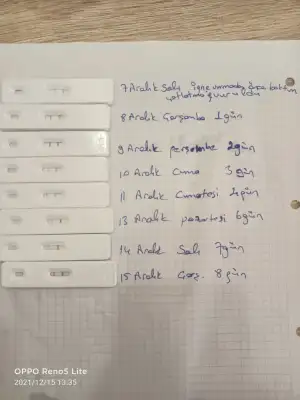 7 Aralık Salı iğne vurmadan
8 Aralık Çarşamba 1 gün
9 Aralık perşembe 2gün
10 Aralık Cuma 3 gün
11 Aralık Cumartesi 4gün
13 Aralık pazartesi 6gün
14 Aralık Salı 7gün
15 Aralık Çarş. 8 gün
OPPO Reno5 Lite
2021/12/15 13:35